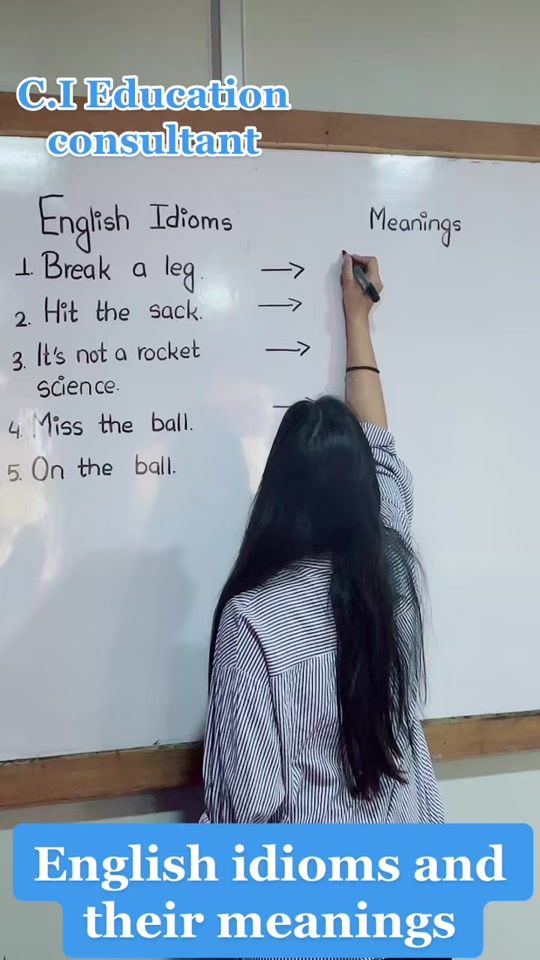 C.I Education
consultant
English Idioms
Meanings
1. Break a leg.
2. Hit the sack.
3. It's not a rocket
science.
4. Miss the ball.
5. On the ball.
English idioms and
their meanings